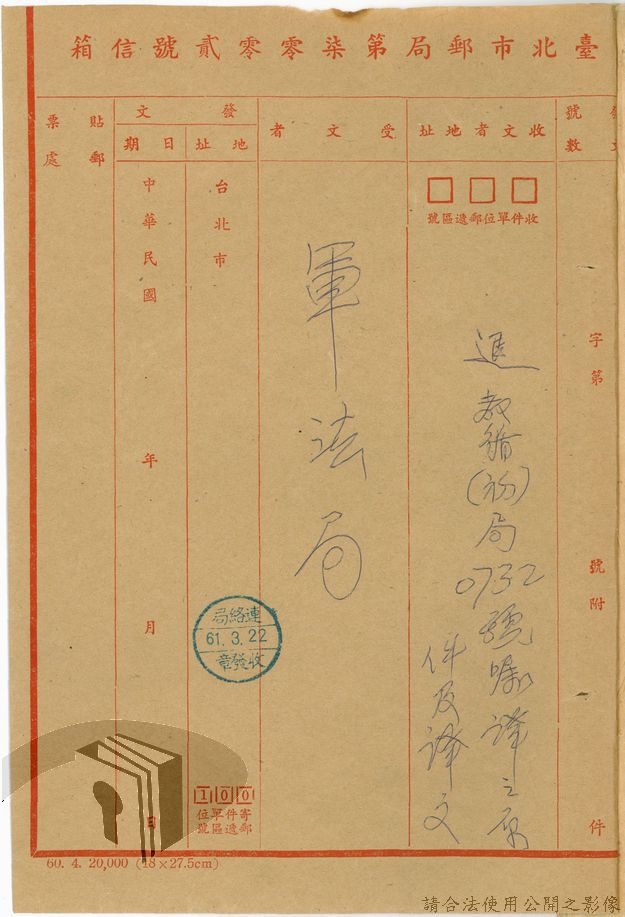 臺北市郵局第柒零零貳號信箱
發文
號數
收文者地址
受文者
發文
地址
日期
貼郵票處
收件單位郵遞區號
字第
號附
件
軍法局
局0732號囑譯之原
件及譯文
台北市
連絡局
61.3.22
收發章
100
寄件單位
郵遞區號
中華民國
年
月
日
60. 4. 20,000 (18×27.5cm)
請合法使用公開之影像